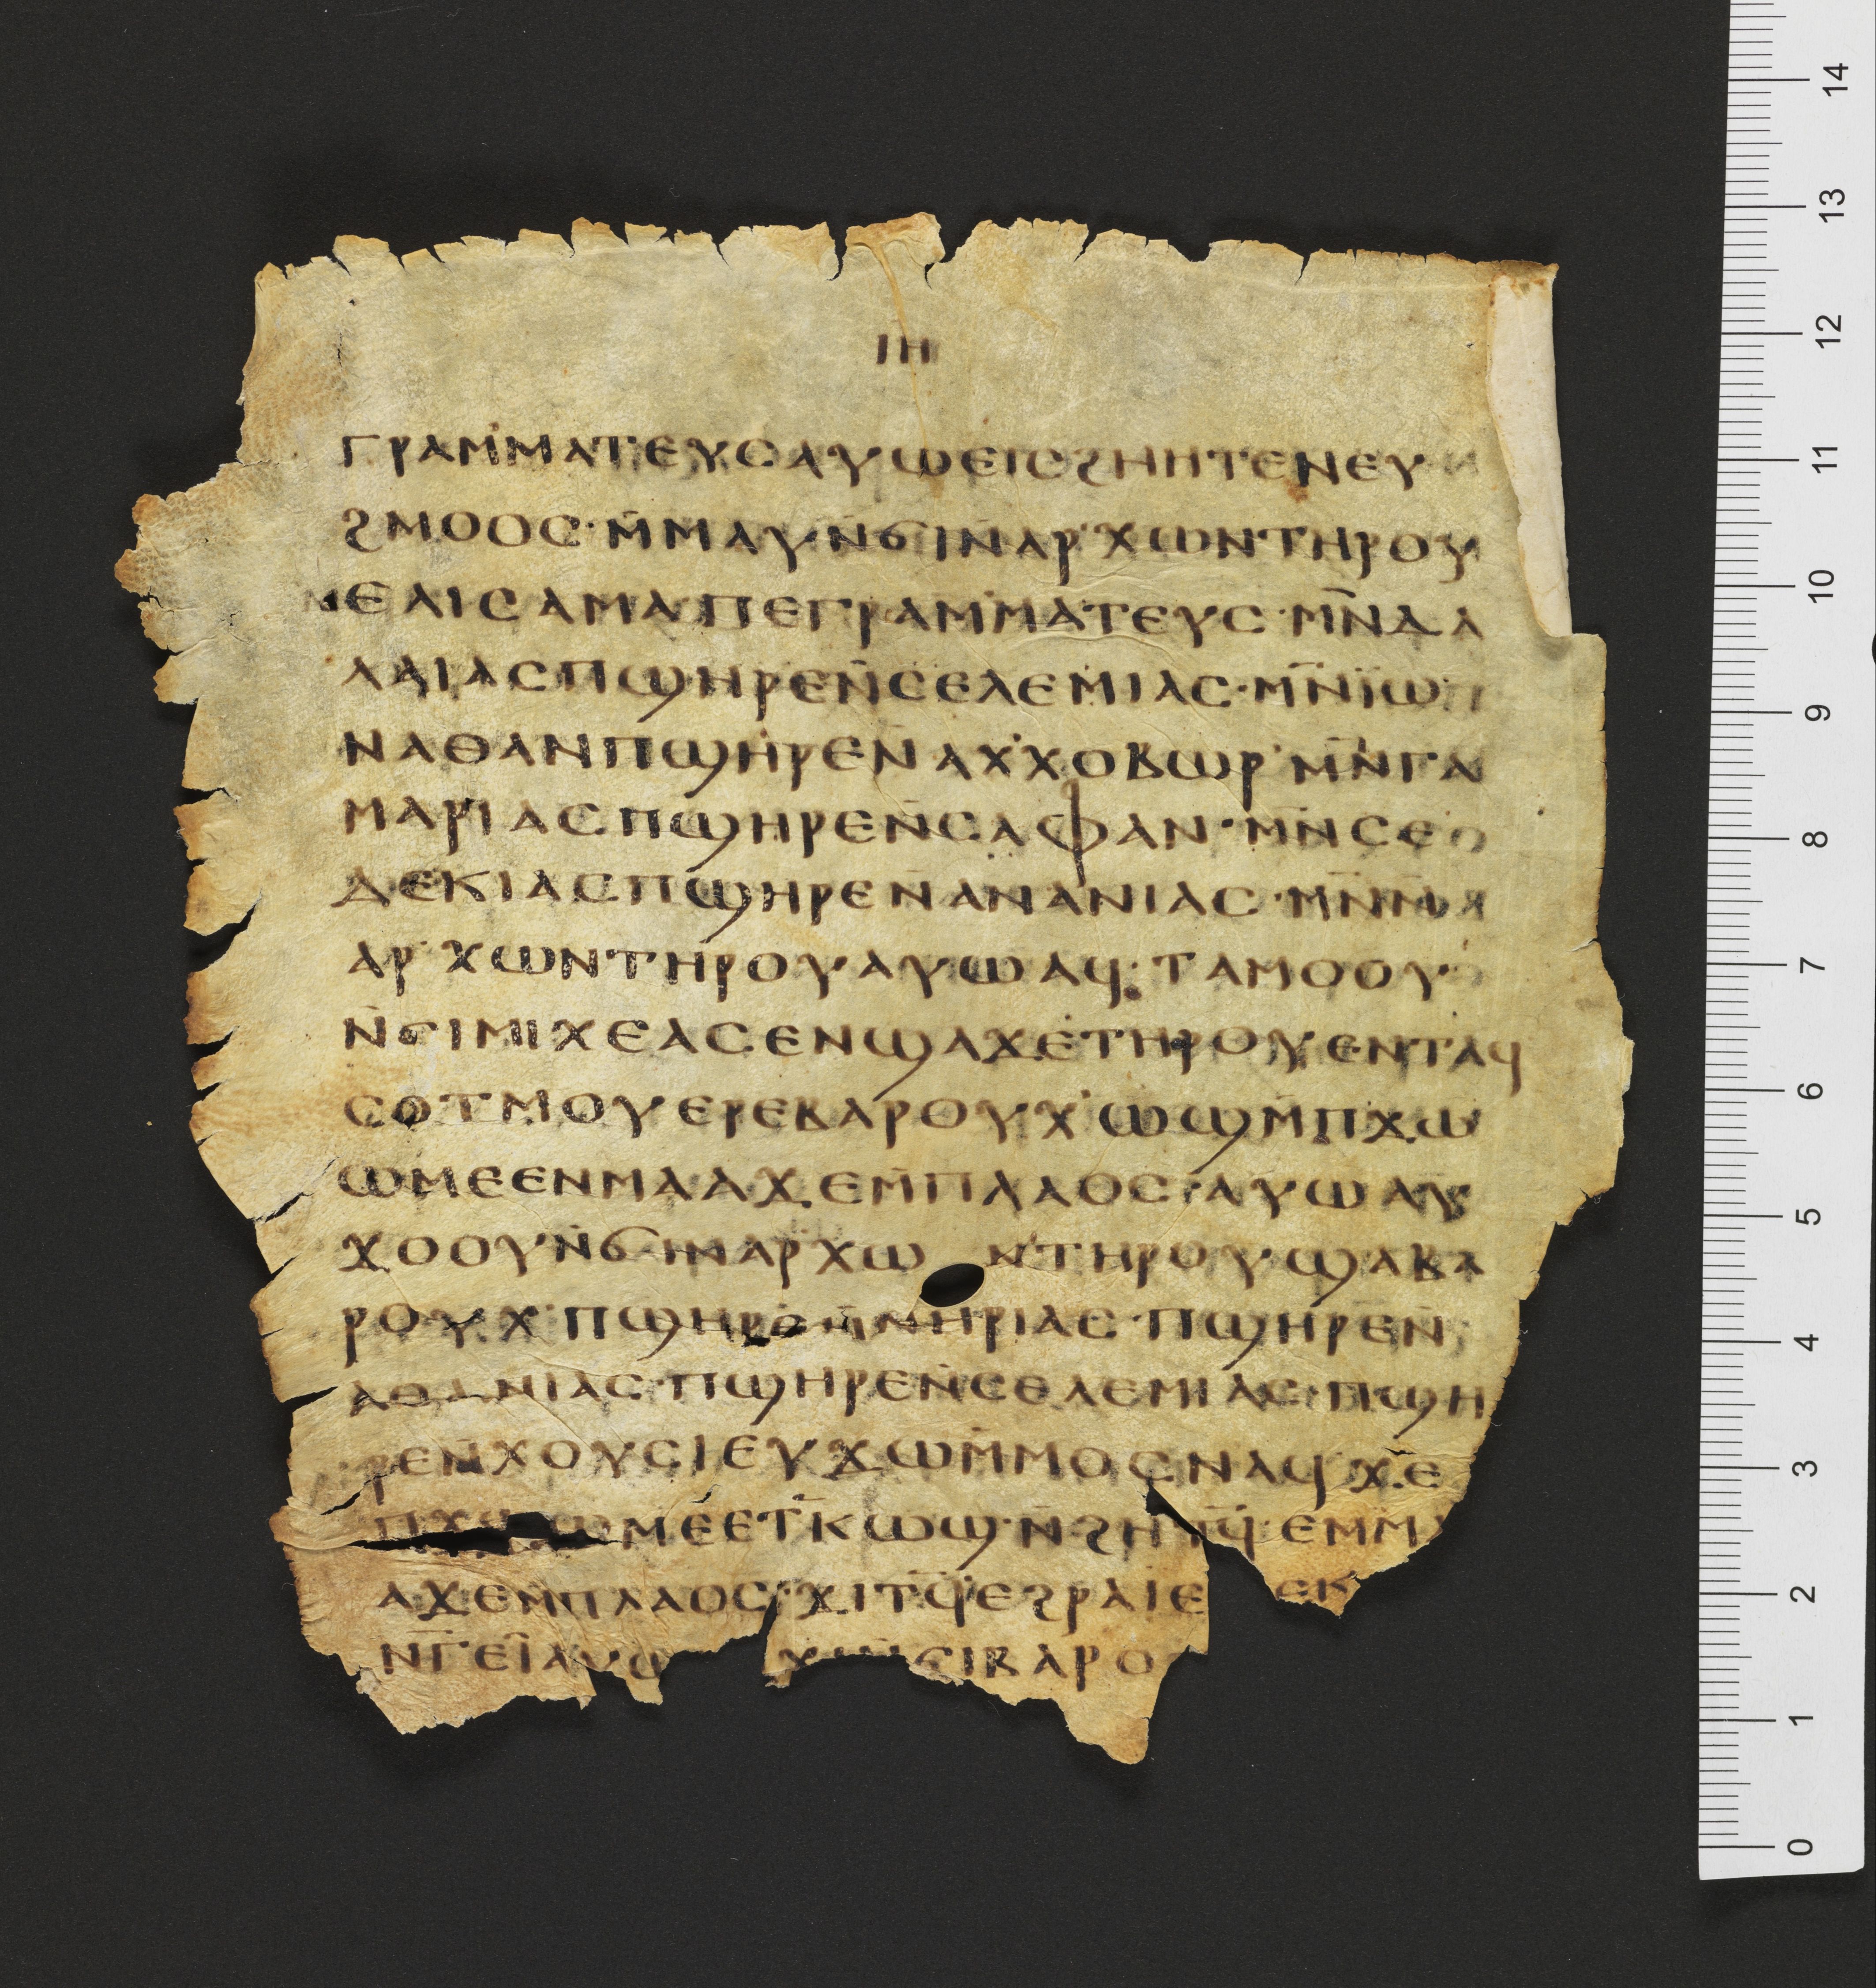 ⲓⲏ
ⲅⲣⲁⲙⲙⲁⲧⲉⲩⲥⲁⲩⲱⲉⲓⲥϩⲏⲏⲧⲉⲛⲉⲩ
ϩⲙⲟⲟⲥ·ⲙ̄ⲙⲁⲩⲛ̄ϭⲓⲛ̄ⲁⲣⲭⲱⲛⲧⲏⲣⲟⲩ
ⲉⲗⲓⲥⲁⲙⲁⲡⲉⲅⲣⲁⲙⲙⲁⲧⲉⲩⲥ·ⲙⲛ̄ⲇⲁ
ⲗⲁⲓⲁⲥⲡϣⲏⲣⲉⲛ̄ⲥⲉⲗⲉⲙⲓⲁⲥ·ⲙⲛ̄ⲓ̈ⲱ
ⲛⲁⲑⲁⲛⲡϣⲏⲣⲉⲛ̄ⲁⲭⲭⲟⲃⲱⲣ·ⲙⲛ̄ⲅⲁ
ⲙⲁⲣⲓⲁⲥⲡϣⲏⲣⲉⲛ̄ⲥⲁⲫⲁⲛ·ⲙⲛ̄ⲥⲉ
ⲇⲉⲕⲓⲁⲥⲡϣⲏⲣⲉⲛ̄ⲁⲛⲁⲛⲓⲁⲥ·ⲙⲛ̄ⲛ̄
ⲁⲣⲭⲱⲛⲧⲏⲣⲟⲩⲁⲩⲱⲁϥⲧⲁⲙⲟⲟⲩ
ⲛ̄ϭⲓⲙⲓⲭⲉⲁⲥⲉⲛϣⲁϫⲉⲧⲏⲣⲟⲩⲉⲛⲧⲁϥ
ⲥⲟⲧⲙⲟⲩⲉⲣⲉⲃⲁⲣⲟⲩⲭⲱϣⲙ̄ⲡϫⲱ
ⲱⲙⲉⲉⲛⲙⲁⲁϫⲉⲙ̄ⲡⲗⲁⲟⲥ·ⲁⲩⲱⲁⲩ
ϫⲟⲟⲩⲛ̄ϭⲓⲛⲁⲣⲭⲱⲛⲧⲏⲣⲟⲩϣⲁⲃⲁ
ⲣⲟⲩⲭⲡϣⲏⲣⲉⲛ̄ⲛⲏⲣⲓⲁⲥ·ⲡϣⲏⲣⲉⲛ̄
ⲁⲑⲁⲛⲓⲁⲥ·ⲡϣⲏⲣⲉⲛ̄ⲥⲉⲗⲉⲙⲓⲁⲥ·ⲡϣⲏ
ⲣⲉⲛ̄ⲭⲟⲩⲥⲓⲉⲩϫⲱⲙ̄ⲙⲟⲥⲛⲁϥϫⲉ
ⲡϫⲱⲱⲙⲉⲉⲧⲕ̄ⲱϣ·ⲛ̄ϩⲏⲧϥ̄·ⲉⲙⲙⲁ
ⲁϫⲉⲙ̄ⲡⲗⲁⲟⲥ·ϫⲓⲧϥ̄ⲉϩⲣⲁⲓⲉ ⲉⲕ
ⲛⲅ̄ⲉⲓ̂ⲁⲩⲱ ϫⲓ ⲛ̄ϭⲓⲃⲁⲣⲟ